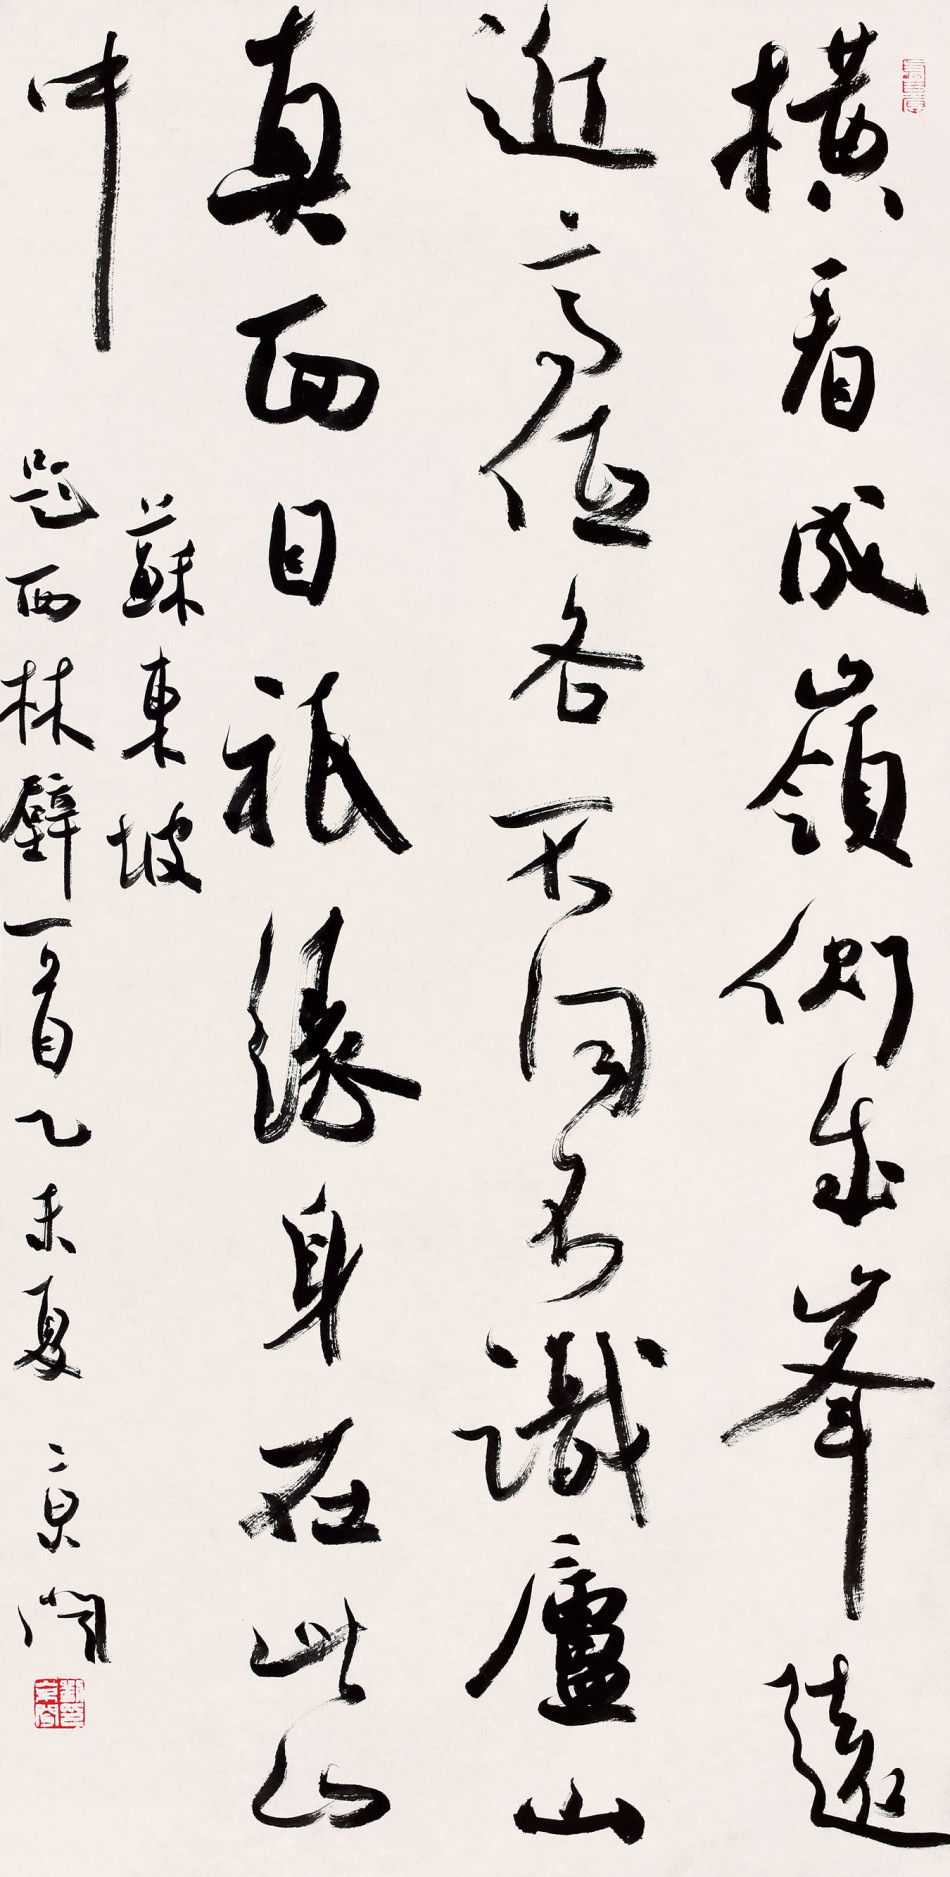 横看成嶺側成峯遠
近高低各不同不識廬山
真面目祇緣身在此山
中
蘇東坡
題西林壁一首乙未夏 京聞